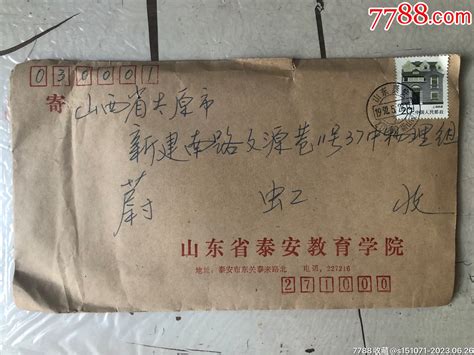 7788.com
中国收藏热线
030001
寄
山西省太原市
新建南路文源巷11号37中物理组
蔚 虹 收
山东泰安
中国人民邮政
山东省泰安教育学院
地址：泰安市东关泰来路北 电话：227216
271000
7788收藏@s151071-2023.06.26